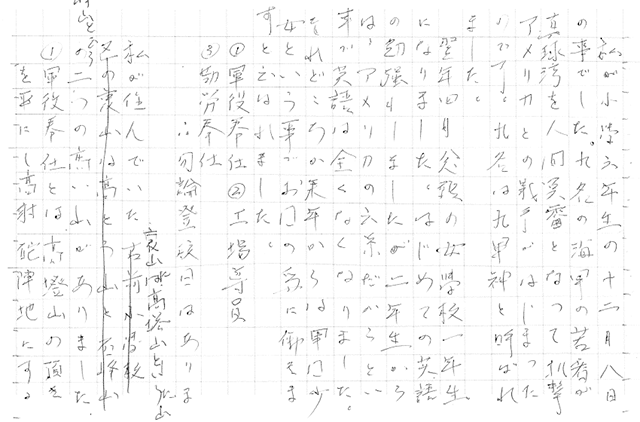 私が小学六年生の十二月八日
の事でした。九名の海軍の若者が
真珠湾を人間魚雷となって攻撃
アメリカとの戦争がはじまった
のです。九名は九軍神と呼ばれ
ました。
翌年四月 女学校一年生
になりました。はじめての英語
の勉強しましたが二年生から
は、アメリカの言葉だからとい
事で英語は全くなくなりました。
それどころか来年からは軍国少
女という事でお国の為に御奉
すと云はれました。
①軍役奉仕②工場導員
③勤労奉仕
勿論登校日はあり
私が住んでいた古前小学校
山は高塔山と
の二つの高い山がありました。
①軍役奉仕とは、高塔山の頂を
を平にし高射砲陣地にする